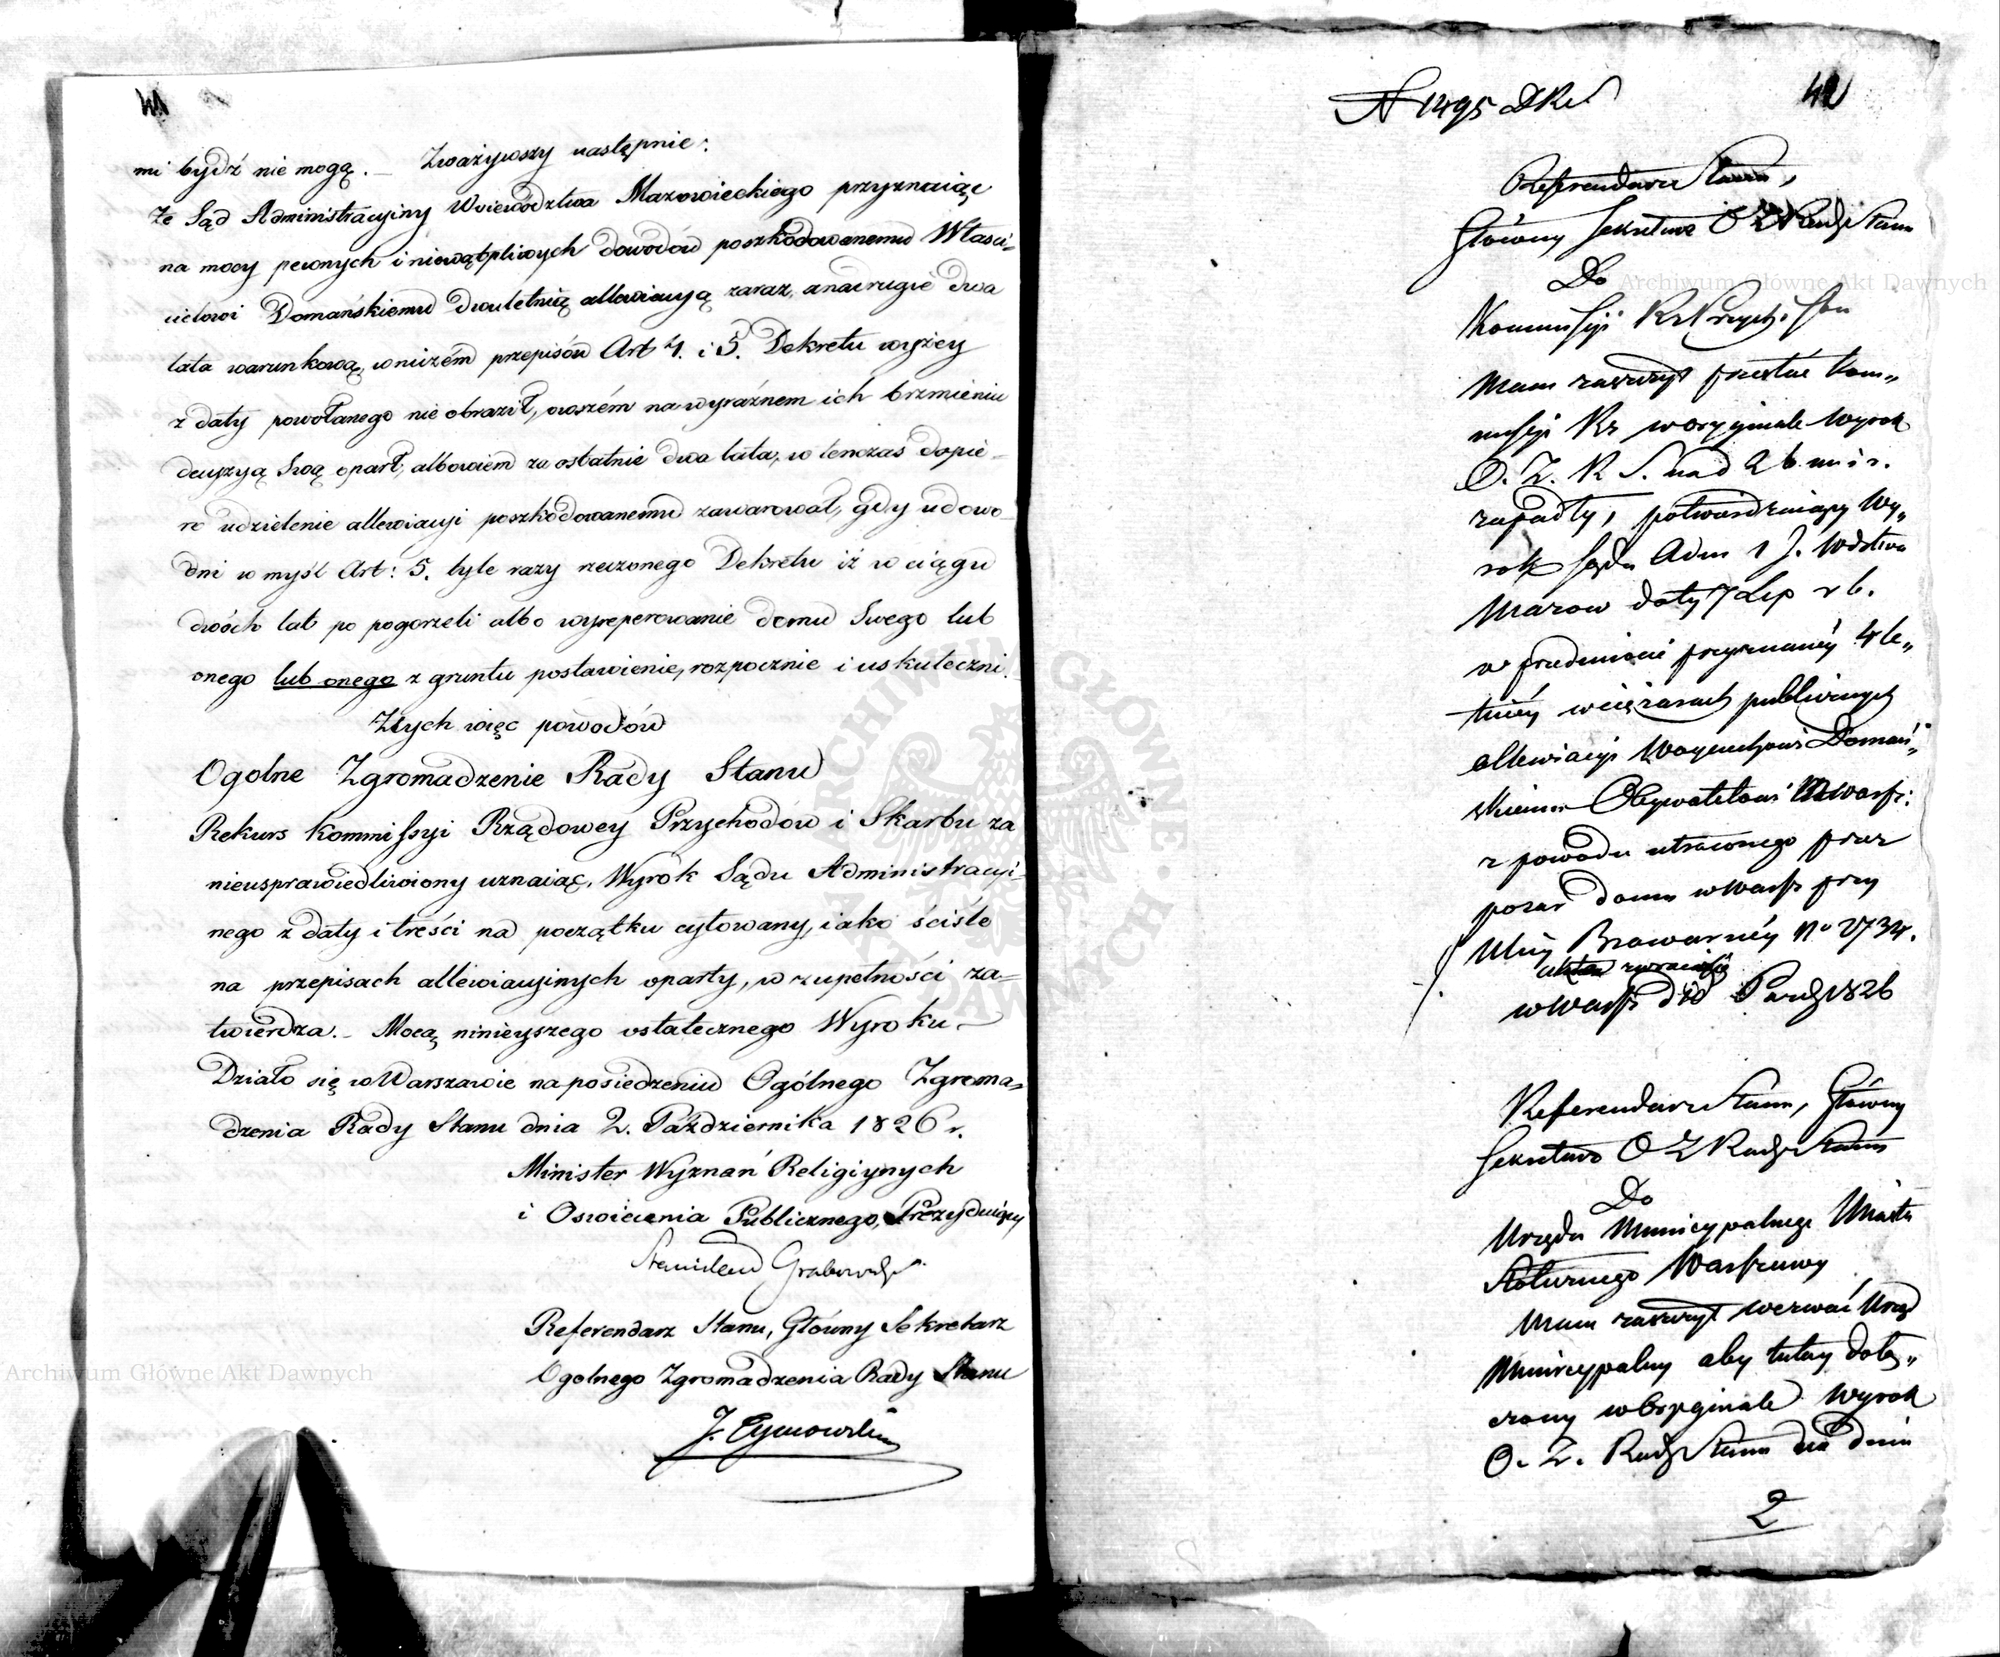 mi bydź nie mogą. — Zważywszy następnie:
że Sąd Administracyiny Woiewództwa Mazowieckiego przyznaiąc
na mocy pewnych i niewątpliwych dowodów poszkodowanemu Właści-
cielowi Domańskiemu dwuletnią allewiacyą zaraz, a na drugie dwa
lata warunkową, w niczém przepisów Art 4. i 5. Dekretu wyżey
z daty powołanego nie obraził, owszém na wyraźnem ich brzmieniu
decyzyą swą oparł, albowiem za ostatnie dwa lata, w tenczas dopie-
ro udzielenie allewiacyi poszkodowanemu zawarował, gdy udowo-
dni w myśl Art: 5. tyle razy rzeczonego Dekretu iż w ciągu
dwóch lat po pogorzeli albo wyreperowanie domu swego lub
onego lub onego z gruntu postawienie, rozpocznie i uskuteczni.
Z tych więc powodów
Ogolne Zgromadzenie Rady Stanu
Rekurs Kommissyi Rządowey Przychodów i Skarbu za
nieusprawiedliwiony uznaiąc, Wyrok Sądu Administracyi-
nego z daty i treści na początku cytowany, iako ściśle
na przepisach allewiacyinych oparty, w zupełności za-
twierdza. — Mocą ninieyszego ostatecznego Wyroku —
Działo się w Warszawie na posiedzeniu Ogólnego Zgroma-
dzenia Rady Stanu dnia 2. Października 1826 r.
Minister Wyznań Religiynych
i Oswiecenia Publicznego, Prezyduiący
Stanisław Grabowski
Referendarz Stanu, Główny Sekretarz
Ogolnego Zgromadzenia Rady Stanu
J. Tymowski
N 1495 DKS
42
Referendarz Stanu,
Główny Sekretarz O Z Rady Stanu
Do
Kommissyi Rz Przych. i Skar
Mam zaszczyt przesłać Kom-
missyi Rz w oryginale Wyrok
O. Z. R S. na d 2 b. m i r.
zapadły, potwierdzaiący Wy-
rok Sądu Adm 1 J. Wdztwa
Mazow daty 7 Lip r b.
w przedmiocie przyznaney 4 le-
tniéy w ciężarach publicznych
allewiacyi Woyciechowi Domań-
skiemu Obywatelowi M Warsz:
z powodu utraconego przez
pożar domu w Warsz przy
Ulicy Browarnéy No 2734.
w Warsz d 12 Paźdz 1826
Referendarz Stanu, Główny
Sekretarz O Z Rady Stanu
Do
Urzędu Municypalnego Miasta
Stołecznego Warszawy
Mam zaszczyt wezwać Urząd
Municypalny aby tutay dołą-
czony w oryginale Wyrok
O. Z. Rady Stanu dnia
2
Archiwum Główne Akt Dawnych
Archiwum Główne Akt Dawnych
ARCHIWUM GŁÓWNE AKT DAWNYCH